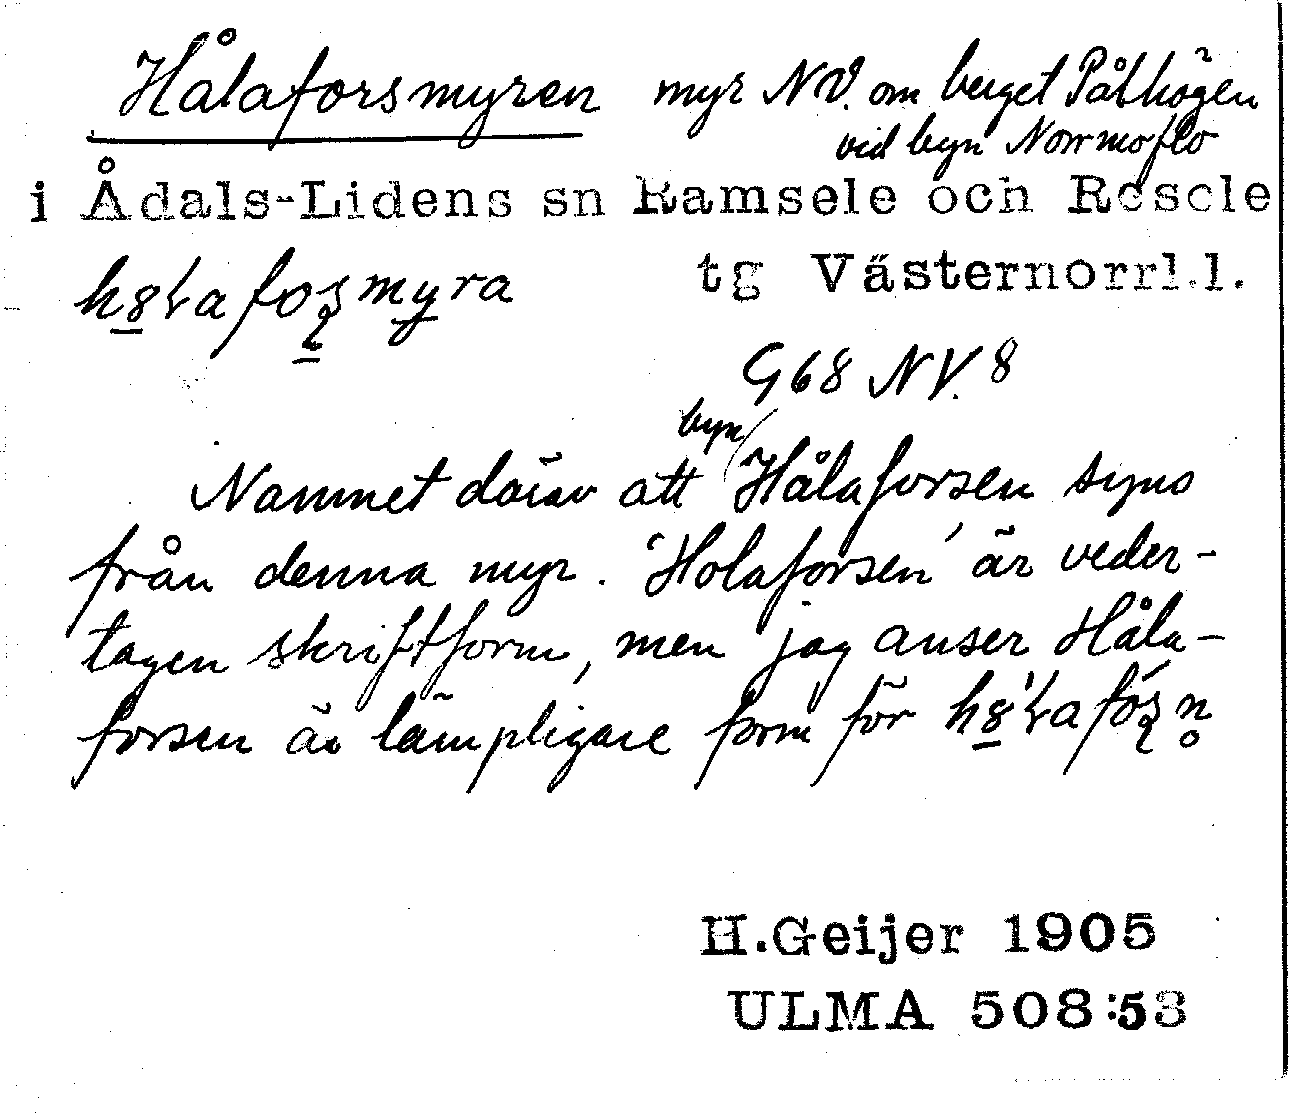 Hålaforsmyren myr NV. om berget Påhögen
vid byn Norrmoflo
i Ådals-Lidens sn Ramsele och Resele
tg Västernorrl.l.
G68 NV. 8
Namnet därav att byn Hålaforsen syns
från denna myr. 'Holaforsen' är veder-
tagen skriftform, men jag anser Håla-
forsen är lämpligare form för
H.Geijer 1905
ULMA 508:53